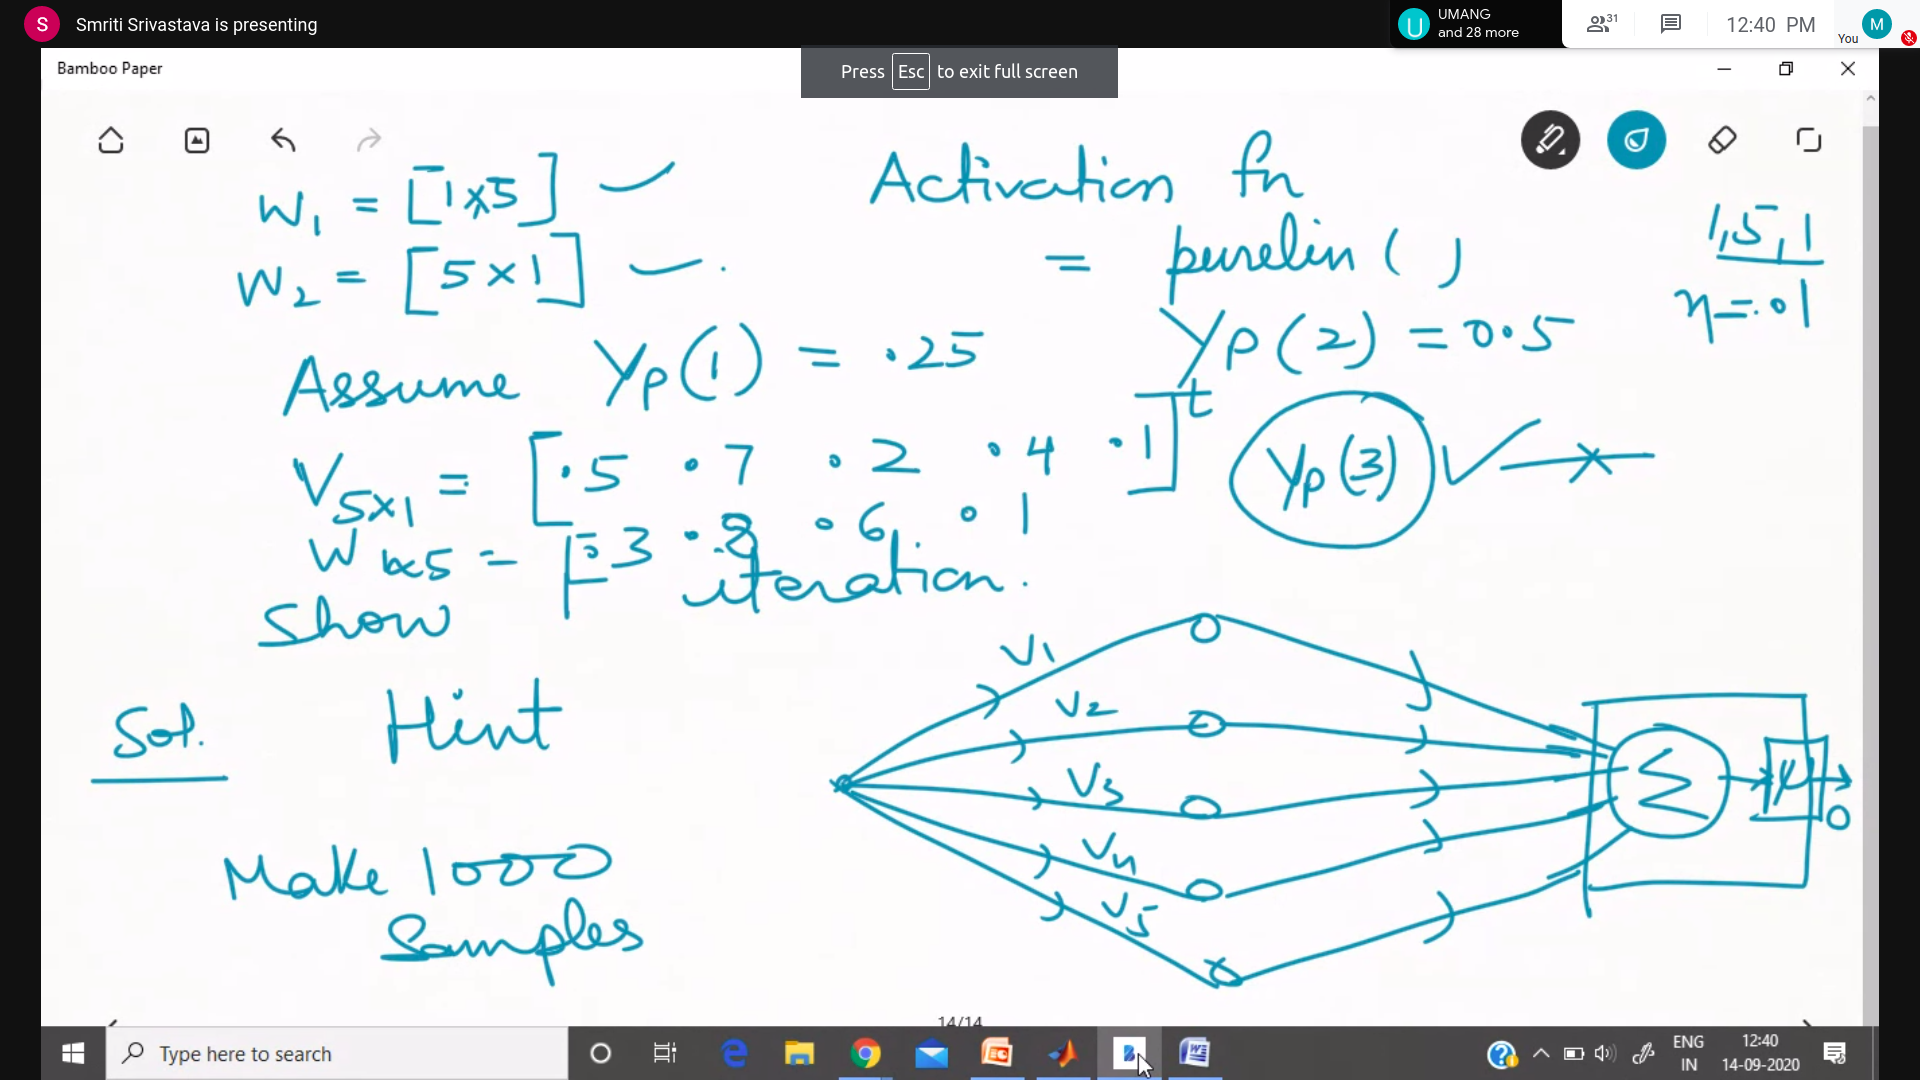 Smriti Srivastava is presenting
UMANG
and 28 more
31
12:40 PM
You
M
S
U
Bamboo Paper
Press Esc to exit full screen
W1 = [1x5]
Activation fn
= purelin ( )
1,5,1
η = .01
W2 = [5 x 1]
Assume Yp(1) = .25
Yp(2) = 0.5
V5x1 = [.5 .7 .2 .4 .1]t
Yp(3)
W1x5 = [.3 .8 .6 .1
Show iteration.
Sol. Hint
Make 1000
Samples
V1
V2
V3
V4
V5
Σ
O
14/14
Type here to search
ENG
IN
12:40
14-09-2020